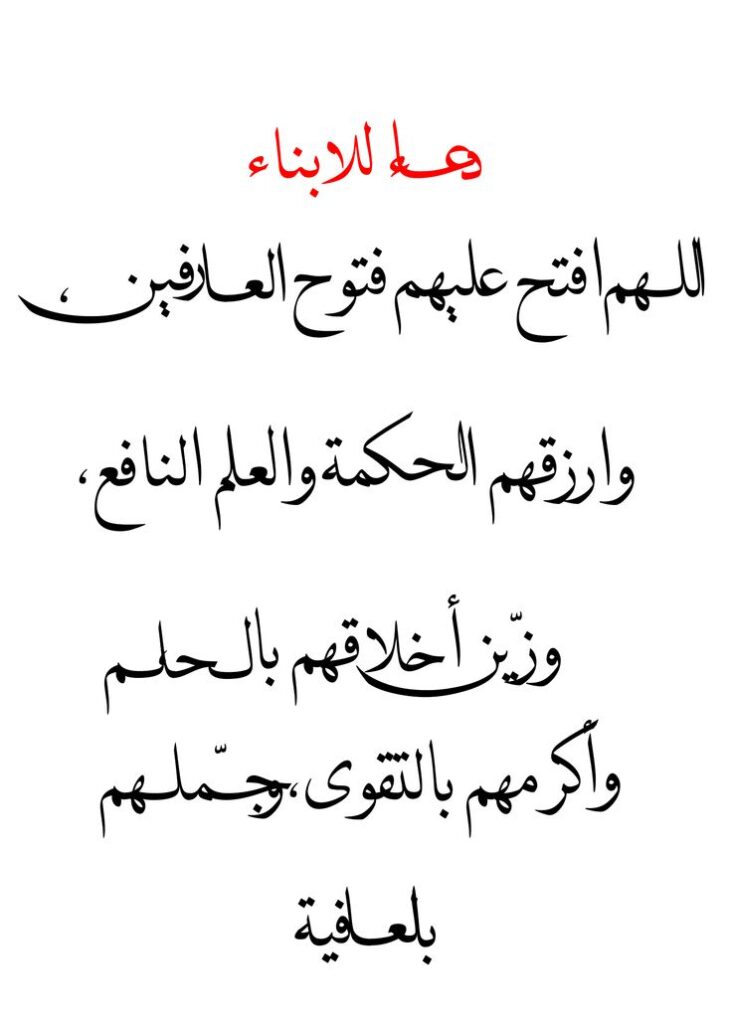 دعاء للابناء
اللهم افتح عليهم فتوح العارفين،
وارزقهم الحكمة والعلم النافع،
وزيّن أخلاقهم بالحلم
وأكرمهم بالتقوى، وجمّلهم
بلعافية